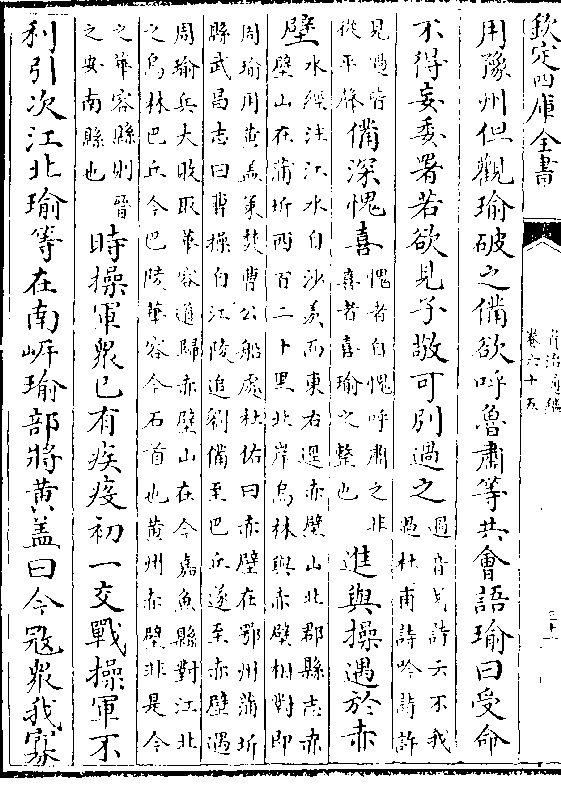 欽定四庫全書
資治通鑑
卷六十五
三十一
用豫州但觀瑜破之備欲呼魯肅等共會語瑜曰受命
不得妄委署若欲見子敬可別過之
過音戈詩云不我
過杜甫詩吟詩許
見過皆
從平
備深愧喜
愧者自愧呼肅之非
喜者喜瑜之整也
進與操遇於赤
壁
水經注江水自沙羡而東右逕赤壁山北郡縣志赤
壁山在蒲圻西百二十里北岸烏林與赤壁相對即
周瑜用黄蓋策焚曹公船處杜佑曰赤壁在鄂州蒲圻
縣武昌志曰曹操自江陵追劉備至巴丘遂至赤壁遇
周瑜兵大敗取華容道歸赤壁山在今嘉魚縣對江北
之烏林巴丘今巴陵華容今石首也黄州赤壁非是今
之華容縣則晉
之安南縣也
時操軍衆已有疾疫初一交戰操軍不
利引次江北瑜等在南岸瑜部將黄盖曰今冦衆我寡